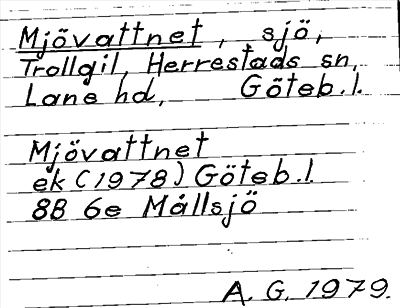 Mjövattnet, sjö,
Trollgil, Herrestads sn,
Lane hd, Göteb.l.
Mjövattnet
ek (1978) Göteb.l.
8B 6e Mållsjö
A. G. 1979.